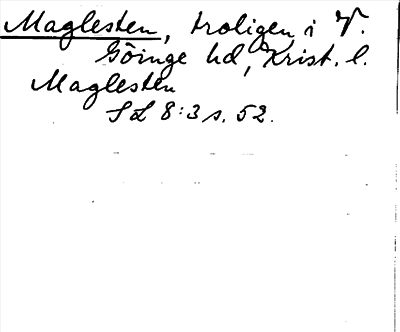 Maglesten, troligen i V.
Göinge hd, Krist. l.
Maglesten
SL 8:3 s. 52.